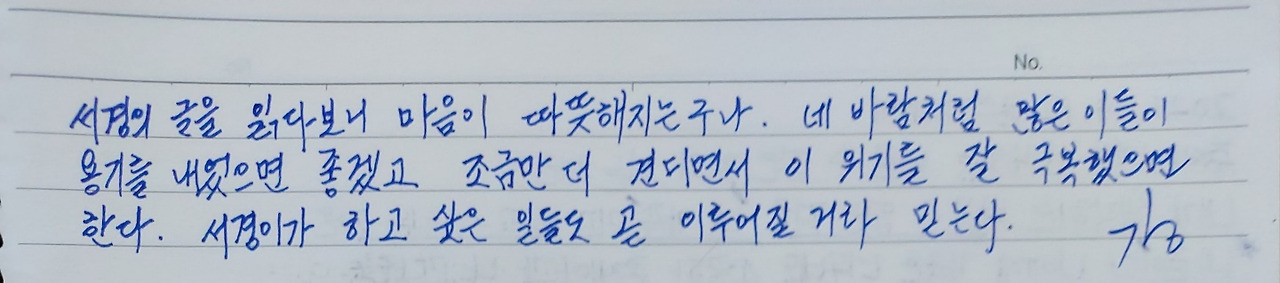 No.
서경의 글을 읽다보니 마음이 따뜻해지는구나. 네 바람처럼 많은 이들이
용기를 내었으면 좋겠고 조금만 더 견디면서 이 위기를 잘 극복했으면
한다. 서경이가 하고 싶은 일들도 곧 이루어질 거라 믿는다.